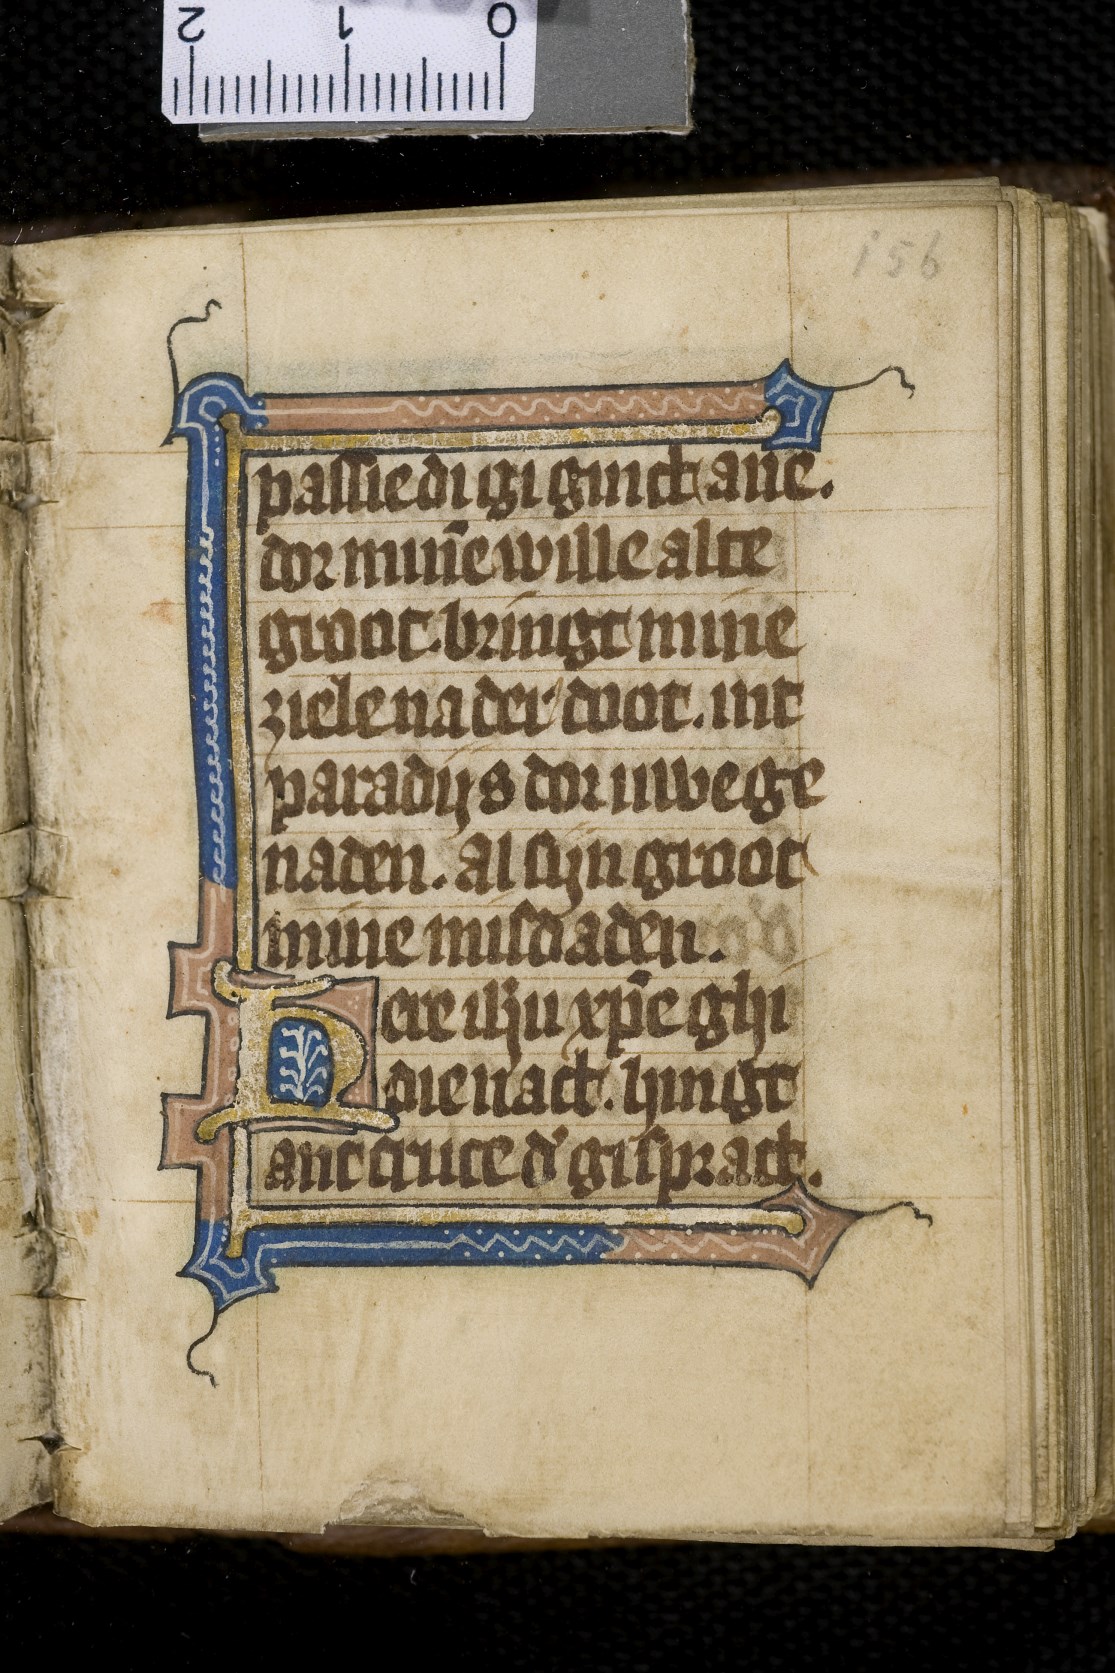 2 1 0
156
passie di gi ginct aue.
dor minn̄e wille alte
groot. bringt mine
ziele na der doot. int
paradijs dor uwe ge
naden. al sijn groot
mine misdaden.
Here ihu xp̄e ghi
die nact. hingt
ant cruce d' gi spract.